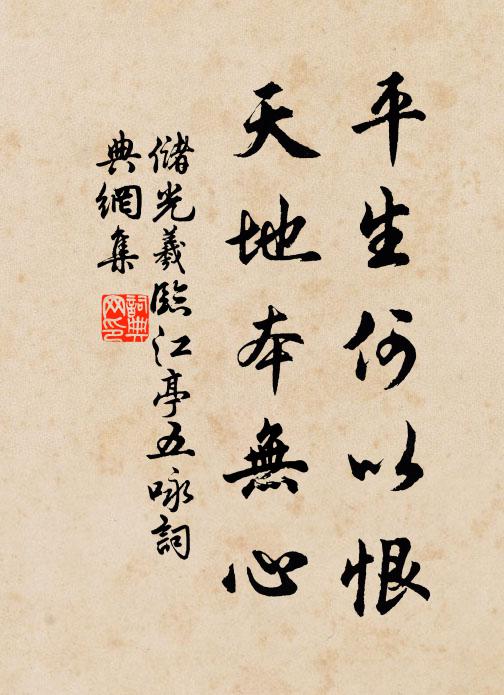 平生何以恨
天地本無心
儲光羲臨江亭五咏詞
典網集
詞典
网印